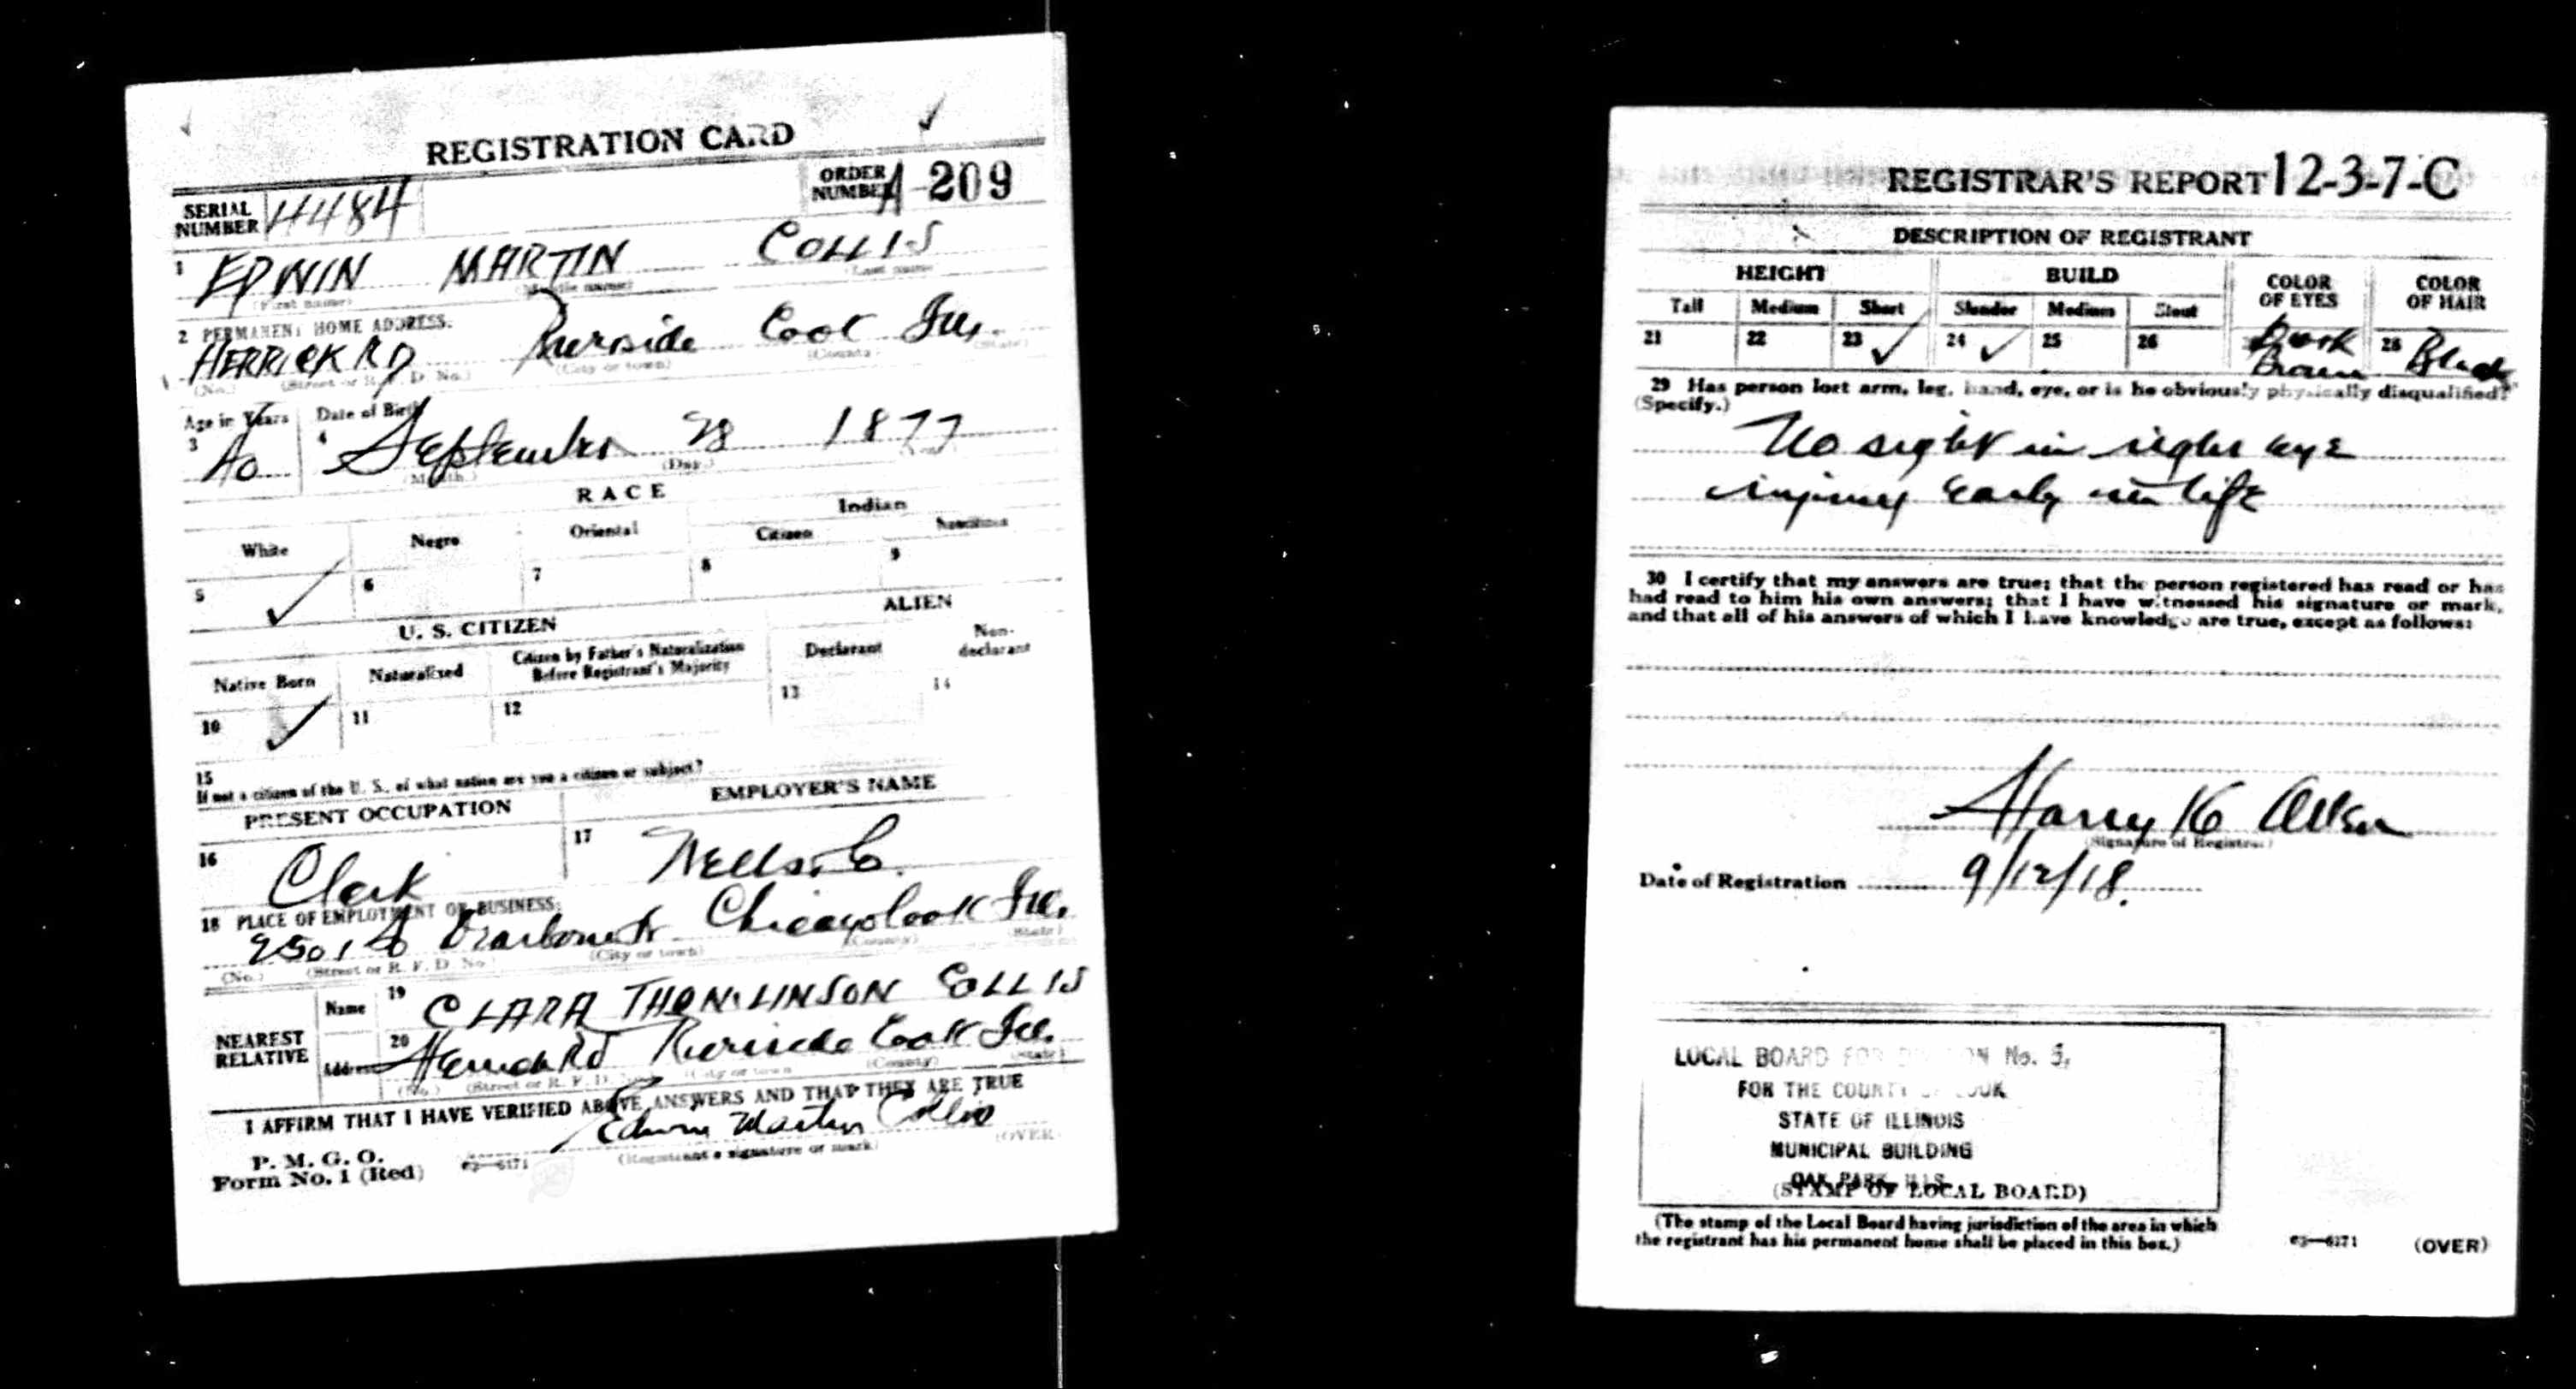 REGISTRATION CARD
SERIAL NUMBER 4484
ORDER NUMBER A-209
1 EDWIN MARTIN COLLIS
(First name) (Middle name) (Last name)
2 PERMANENT HOME ADDRESS.
HERRICK RD Riverside Cook Ill.
(No.) (Street or R. F. D. No.) (City or town) (County) (State)
Age in Years Date of Birth
3 40 4 September 28 1877
(Month) (Day) (Year)
RACE
White Negro Oriental Indian
Citizen Noncitizen
5 ✓ 6 7 8 9
U. S. CITIZEN ALIEN
Native Born Naturalized Citizen by Father's Naturalization Before Registrant's Majority Declarant Non-declarant
10 ✓ 11 12 13 14
15
If not a citizen of the U. S., of what nation are you a citizen or subject?
PRESENT OCCUPATION EMPLOYER'S NAME
16 Clerk 17
18 PLACE OF EMPLOYMENT OR BUSINESS:
2501 S Dearborn St Chicago Cook Ill.
(No.) (Street or R. F. D. No.) (City or town) (County) (State)
NEAREST RELATIVE
Name 19 CLARA THOMLINSON COLLIS
Address 20 Herrick Rd Riverside Cook Ill.
(No.) (Street or R. F. D. No.) (City or town) (County) (State)
I AFFIRM THAT I HAVE VERIFIED ABOVE ANSWERS AND THAT THEY ARE TRUE
P. M. G. O.
Form No. 1 (Red) 03—6171
Edwin Martin Collis
(Registrant's signature or mark) (OVER)
REGISTRAR'S REPORT 12-3-7-C
DESCRIPTION OF REGISTRANT
HEIGHT BUILD COLOR OF EYES COLOR OF HAIR
Tall Medium Short Slender Medium Stout
21 22 23 ✓ 24 ✓ 25 26 Dark Brown 28 Black
29 Has person lost arm, leg, hand, eye, or is he obviously physically disqualified?
(Specify.)
No sight in right eye
injury early in life
30 I certify that my answers are true; that the person registered has read or has
had read to him his own answers; that I have witnessed his signature or mark,
and that all of his answers of which I have knowledge are true, except as follows:
Harry
(Signature of Registrar)
Date of Registration 9/12/18.
LOCAL BOARD FOR DIVISION No. 5,
FOR THE COUNTY OF COOK
STATE OF ILLINOIS
MUNICIPAL BUILDING
OAK PARK, ILLS.
(STAMP OF LOCAL BOARD)
(The stamp of the Local Board having jurisdiction of the area in which
the registrant has his permanent home shall be placed in this box.)
03—6171 (OVER)